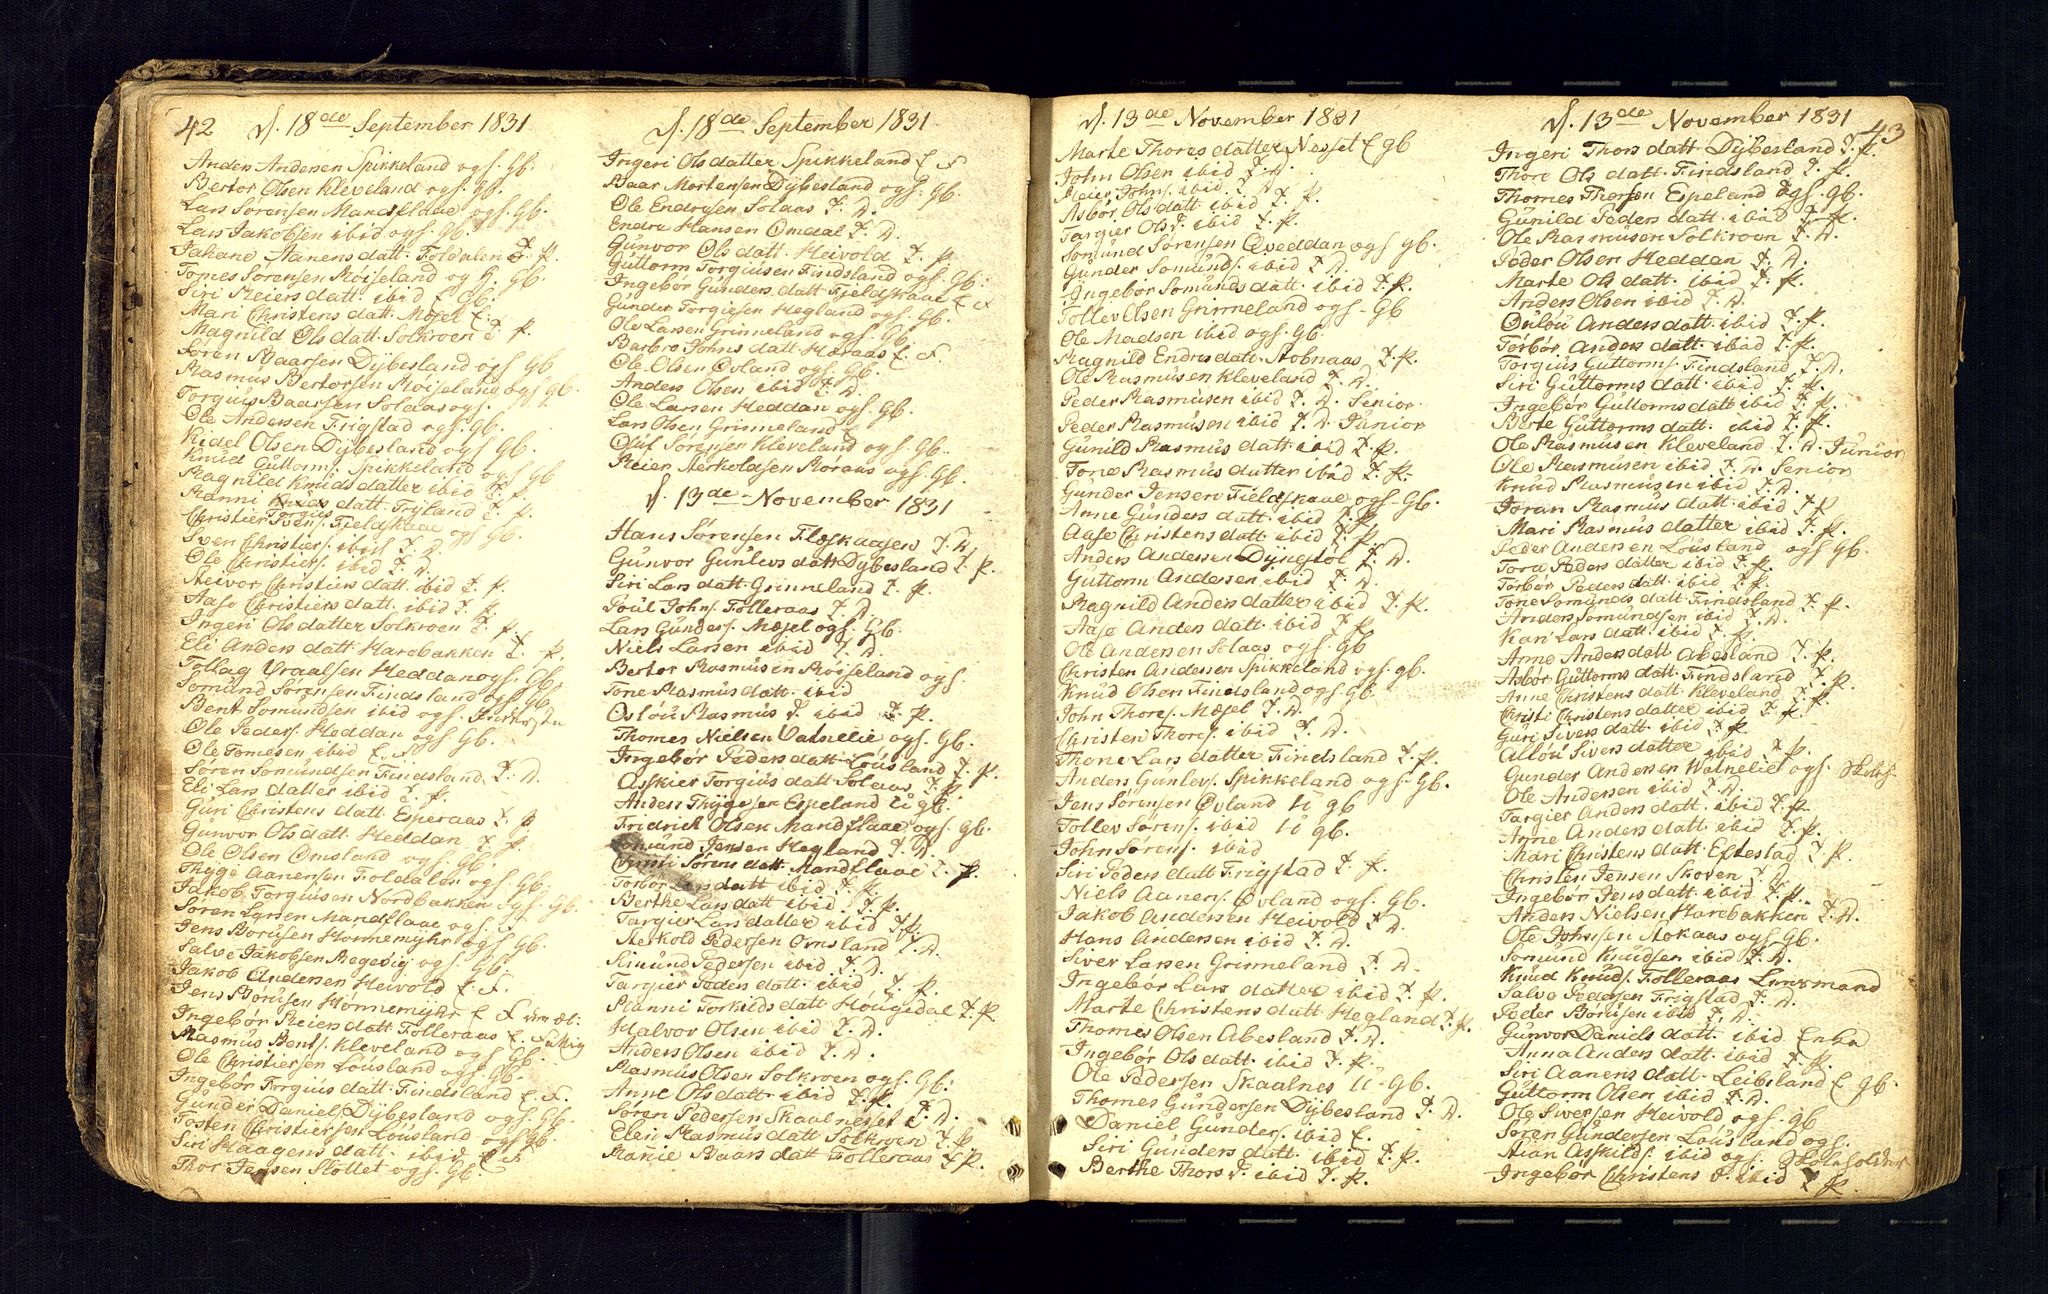 42 d. 18de September 1831
Anders Andersen Spikkeland ogs. Gb.
Bertor Olsen Kleveland ogs. Gb.
Lars Sørensen Mandflaae ogs. Gb.
Lars Jakobsen ibid ogs. Gb.
Aanens datt. Foldalen T. P.
Tomes Sørensen Røiseland og H. Gb.
Siri Reiers datt. ibid E. Gb.
Mari Christens datt. Møsel E.
Magnild Ols datt. Solkroen T. P.
Søren Baarsen Dÿbesland ogs Gb
Rasmus Bertorsen Røiseland ogs Gb.
Torguis Baarsen Solaas ogs.
Ole Andersen Frigstad ogs. Gb.
Kidel Olsen Dÿbesland ogs Gb.
Knud Guttorms. Spikkeland ogs Gb
Ragnild Knuds datter ibid T. P.
Ranni Torgies datt. Trÿland T. P.
Christier Svens. Fieldskaae
Sven Christiers. ibid T. D. H Gb.
Ole Christiers. ibid T. D.
Reivor Christiers datt. ibid T. P.
Aase Christiers datt. ibid T. P.
Ingeri Ols datter Solkroen T. P.
Eli Anders datt. Harebakken T. P.
Tollag Vraalsen Heddan ogs. Gb.
Somund Sørensen Findsland ogs Gb
Bent Somundsen ibid ogs.
Ole Peders. Heddan ogs Gb.
Ole Tomesen ibid E. F.
Søren Somundsen Findsland T. D.
Eli Lars datter ibid T. P.
Guri Christens datt. Esperaas T. P
Gunvor Ols datt. Heddan T. P.
Ole Olsen Omsland ogs Gb
Thÿge Aanensen Foldalen ogs. Gb.
Jakob Torguisen Nordbakken ogs. Gb.
Søren Larsen Mandflaae ogs.
Jens Borusen Hønnemÿhr ogs Gb.
Salve Jakobsen Regevig ogs. Gb.
Jakob Andersen Heivold E. F.
Jens Borusen Hønnemÿhr E. F
Ingebor Reiers datt. Tolleraas E. F
Rasmus Bents. Kleveland ogs Gb.
Ole Christiersen Lousland ogs. Gb.
Ingebør Torguis datt. Findsland E. F.
Gunder Daniels. Dÿbesland ogs. Gb.
Tosten Christiersen Lousland ogs Gb.
Siri Haagens datt. ibid E. F
Thor Jansen Slottet ogs. Gb.
d. 18de September 1831
Ingeri Ols datter Spikkeland E. F
Baar Mortensen Dÿbesland ogs Gb.
Ole Endresen Solaas T. D.
Endre Hansen Omdal T. D.
Gunvor Ols datt. Heivold T. P.
Guttorm Torguisen Findsland ogs Gb.
Ingebør Gunders datt Fieldskaae E. F
Gunder Torgiesen Hegland ogs. Gb.
Ole Larsen Grimeland ogs. Gb.
Barbro Johns datt. Haraas E. F.
Ole Olsen Øvland ogs. Gb.
Anders Olsen ibid T. D.
Ole Larsen Heddan ogs. Gb.
Lars Olsen Grimeland E.
Oluf Sørensen Kleveland ogs Gb.
Reier Nerkoldsen Roraas ogs Gb.
d. 13de November 1831
Hans Sørensen Floskaasen T. D.
Gunvor Gunlevs datt. Dÿbesland T. P.
Siri Lars datt. Grimeland T. P.
Poul Johns. Tolleraas T. D.
Lars Gunders. Møsel ogs. Gb.
Niels Larsen ibid T. D.
Bertor Rasmusen Røiseland ogs
Tone Rasmus datt. ibid
Oslou Rasmus D. ibid T. P.
Thomes Nielsen Vatnelie ogs. Gb.
Ingebør Peders datt. Lousland T. P.
Asskier Torguis datt Solaas T. P.
Anders Thÿgesen Espeland U gb.
Fridrick Olsen Mandflaae ogs. Gb.
Somund Jensen Hegland T. D.
Christi Sørens datt. Mandflaae T. P.
Torbor Lars datt ibid T. P.
Berthe Lars datt ibid T. P.
Targier Lars datter ibid T. P.
Nerkold Pedersen Omsland T. D.
Simund Pedersen ibid T. D.
Targier Peders datt. ibid T. P.
Ranni Torkilds datt Hougedal T. P
Halvor Olsen ibid T. D.
Anders Olsen ibid T. D.
Rasmus Olsen Solkroen ogs. Gb.
Anne Ols datt. ibid T. P.
Søren Pedersen Skaalneset T. D.
Eleri Rasmus datt Solkroen T. P
Marie Baars datt Tolleraas T. P.
d. 13de November 1831
Marte Thores datter Nesset E gb
John Olsen ibid T. D.
Reier Johns. ibid T. D
Asbør Ols datt ibid T. P.
Targier Ols D. ibid T. P.
Somund Sørensen Qveddan ogs Gb.
Gunder Somunds. ibid T. D.
Ingebør Somunds datt. ibid T. P.
Tollev Olsen Grimeland ogs. Gb
Ole Madsen ibid ogs. Gb.
Ragnild Endres datt. Stobnaas T. P.
Ole Rasmusen Kleveland T. D.
Peder Rasmusen ibid T. D. Senior.
Peder Rasmusen ibid T. D. Junior
Gunild Rasmus datt. ibid T. P.
Tone Rasmus datter ibid T. P.
Gunder Jensen Fieldskaae ogs. Gb.
Anne Gunders datt. ibid T. P.
Aase Christens datt. ibid T. P.
Anders Andersen Dÿngstøl T. D.
Guttorm Andersen ibid T. D.
Ragnild Anders datter ibid T. P.
Aase Anders datt. ibid T. P
Ole Andersen Solaas ogs. Gb
Christen Andersen Spikkeland ogs. gb.
Knud Olsen Findsland ogs. Gb.
John Thores. Møsel T. D.
Christen Thores. ibid T. D.
Thone Lars datter Findsland T. P.
Anders Gunlevs. Spikkeland ogs. Gb.
Jens Sørensen Øvland U gb
Tollev Sørens. ibid U gb.
John Sørens. ibid
Siri Peders datt Frigstad T. P.
Niels Aanens. Øvland ogs. Gb.
Jakob Andersen Heivold T. D
Hans Andersen ibid T. D.
Siver Larsen Grimeland T. D.
Ingebør Lars datter ibid T. P.
Marte Christens datt Hegland T. P.
Thomes Olsen Abesland T. D.
Ingebør Ols datt. ibid T. P.
Ole Pedersen Skaalnes U-Gb.
Thomes Gundersen Dÿbesland T. D.
Daniel Gunders. ibid E.
Siri Gunders datt. ibid T. P.
Berthe Thors D. ibid T. P.
d. 13de November 1831 43
Ingeri Thors datt. Dÿbesland T. P.
Thore Ols datt. Findsland T. P.
Thomes Thorsen Espeland ogs. gb.
Gunild Peders datt. ibid T. P.
Ole Rasmusen Solkroen T. D.
Peder Olsen Heddan T. D.
Marte Ols datt. ibid T. P.
Anders Olsen ibid T. D.
Onlou Anders datt. ibid T. P.
Torbør Anders datt. ibid T. P.
Torguis Guttorms. Findsland T. D.
Siri Guttorms datt. ibid T. P.
Ingebør Guttorms datt ibid T. P.
Berte Guttorms datt. ibid T. P.
Ole Rasmusen Kleveland T. D. Junior
Ole Rasmusen ibid T. D. Senior
Knud Rasmusen ibid T. D.
Joran Rasmus datt. ibid T P
Mari Rasmus datter ibid T. P.
Peder Andersen Lousland ogs Gb.
Tora Peders datter ibid T. P.
Torbør Peders datt. ibid T. P.
Tone Somunds datt. Findsland T. P.
Anders Somundsen ibid T. D.
Kari Lars datt. ibid T. P.
Anne Anders datt Abesland T. P.
Asbør Guttorms datt. Findsland T. P.
Anne Christens datt. Kleveland T. P.
Christi Christens datter ibid T. P.
Guri Sivers datt. ibid T. P.
Allou Sivers datter ibid T. P.
Gunder Andersen Watnelie ogs.
Ole Andersen ibid T. D.
Targier Anders datt. ibid T. P
Anne Anders datt. ibid T. P.
Mari Christens datt. Eftestad T. P.
Christen Jensen Skoven T. D
Ingebør Jens datt. ibid T. P.
Anders Nielsen Harebakken T. D.
Ole Johnsen Stokaas ogs Gb.
Somund Knudsen ibid T. D.
Knud Knuds. Tolleraas Lensmand
Salve Pedersen Frigstad T. D.
Peder Borusen ibid T. D.
Gunvor Daniels datt. ibid Enke
Anna Anders datt. ibid T. P.
Siri Aanens datt. Leibsland E Gb.
Guttorm Olsen ibid T. D.
Ole Siversen Heivold ogs. Gb
Søren Gundersen Lousland ogs.
Stian Askilds. ibid ogs. Skoleholder
Ingebør Christens D. ibid T. P.